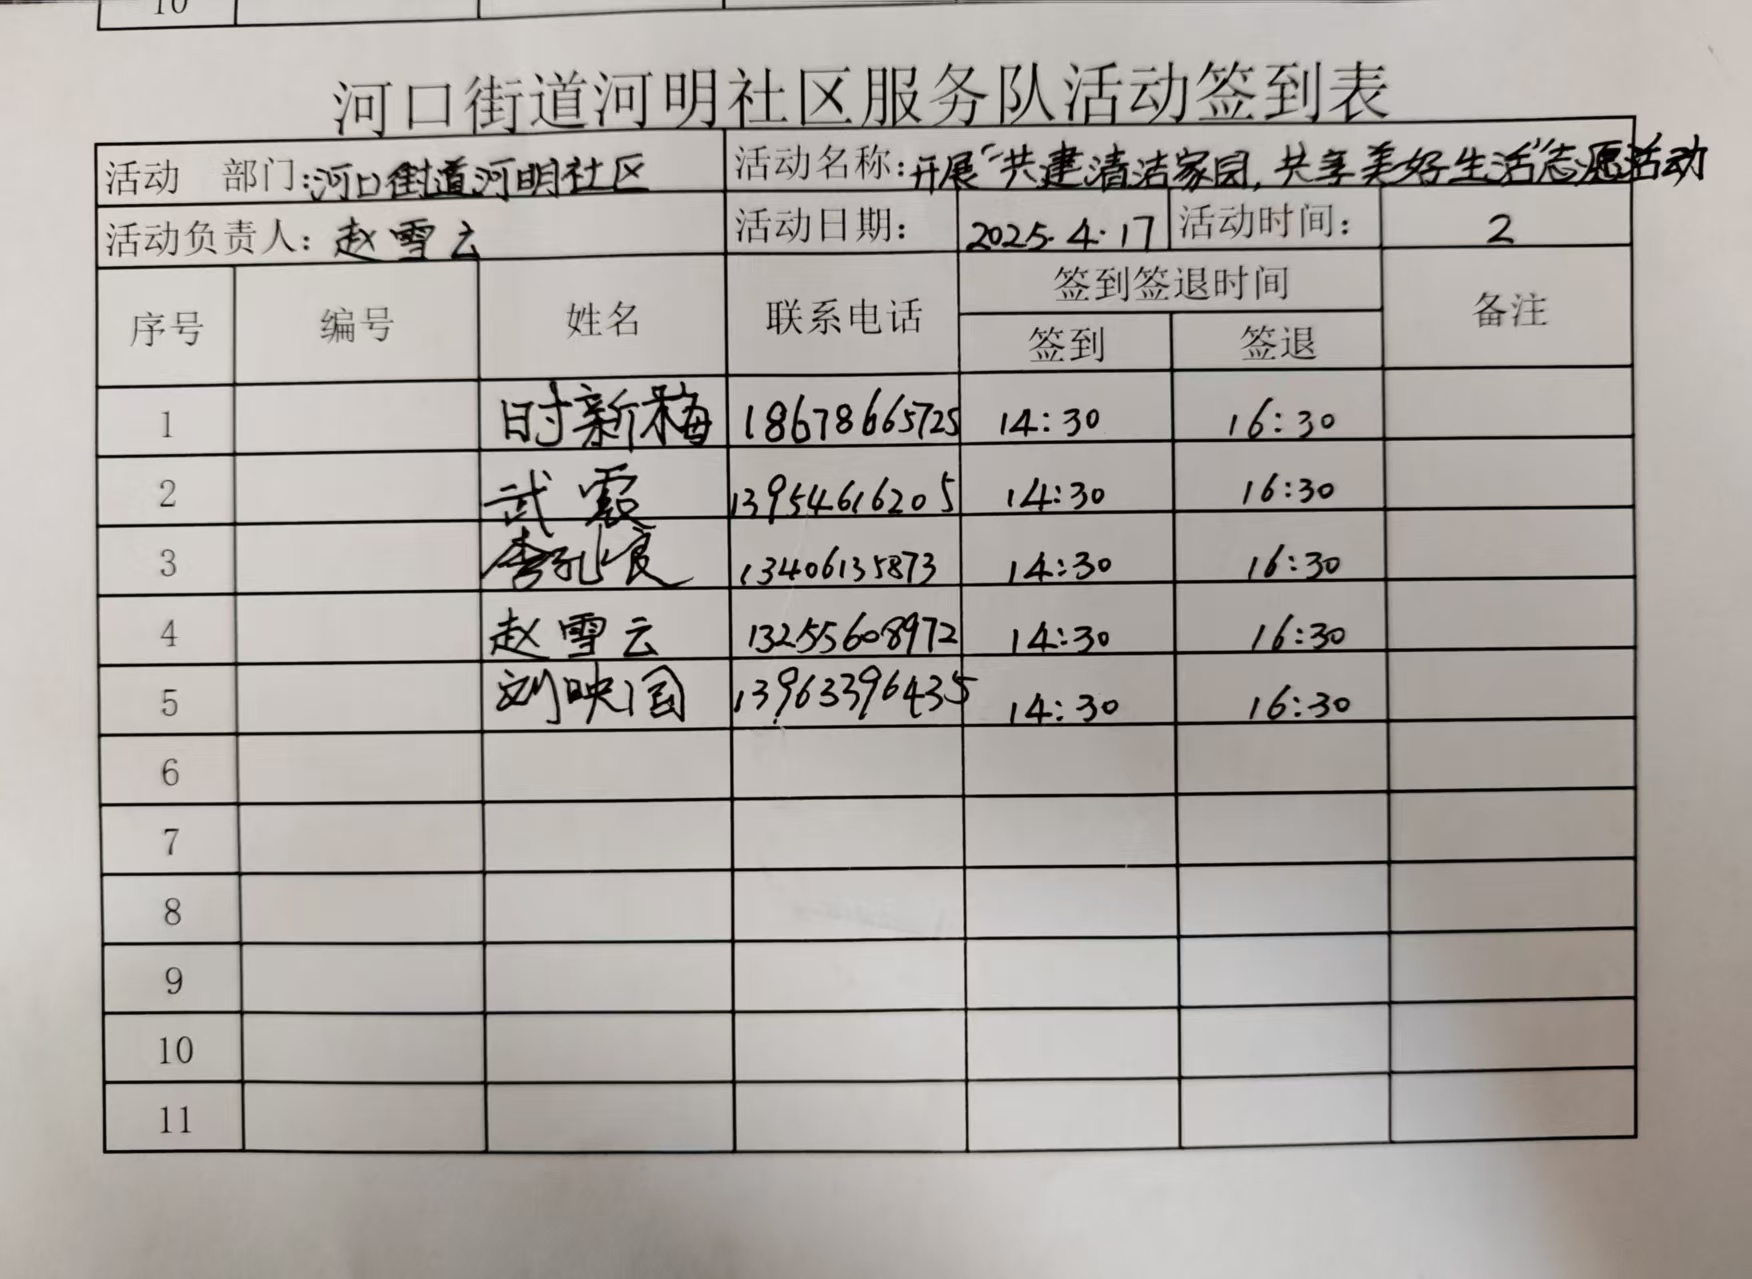 10
河口街道河明社区服务队活动签到表
活动 部门:河口街道河明社区 活动名称:开展“共建清洁家园,共享美好生活”志愿活动
活动负责人:赵雪云 活动日期: 2025.4.17 活动时间: 2
序号 编号 姓名 联系电话 签到签退时间 备注
签到 签退
1 时新梅 18678665725 14:30 16:30
2 武霞 13954616205 14:30 16:30
3 李孔 13406135873 14:30 16:30
4 赵雪云 13255608972 14:30 16:30
5 刘映国 13963396435 14:30 16:30
6
7
8
9
10
11